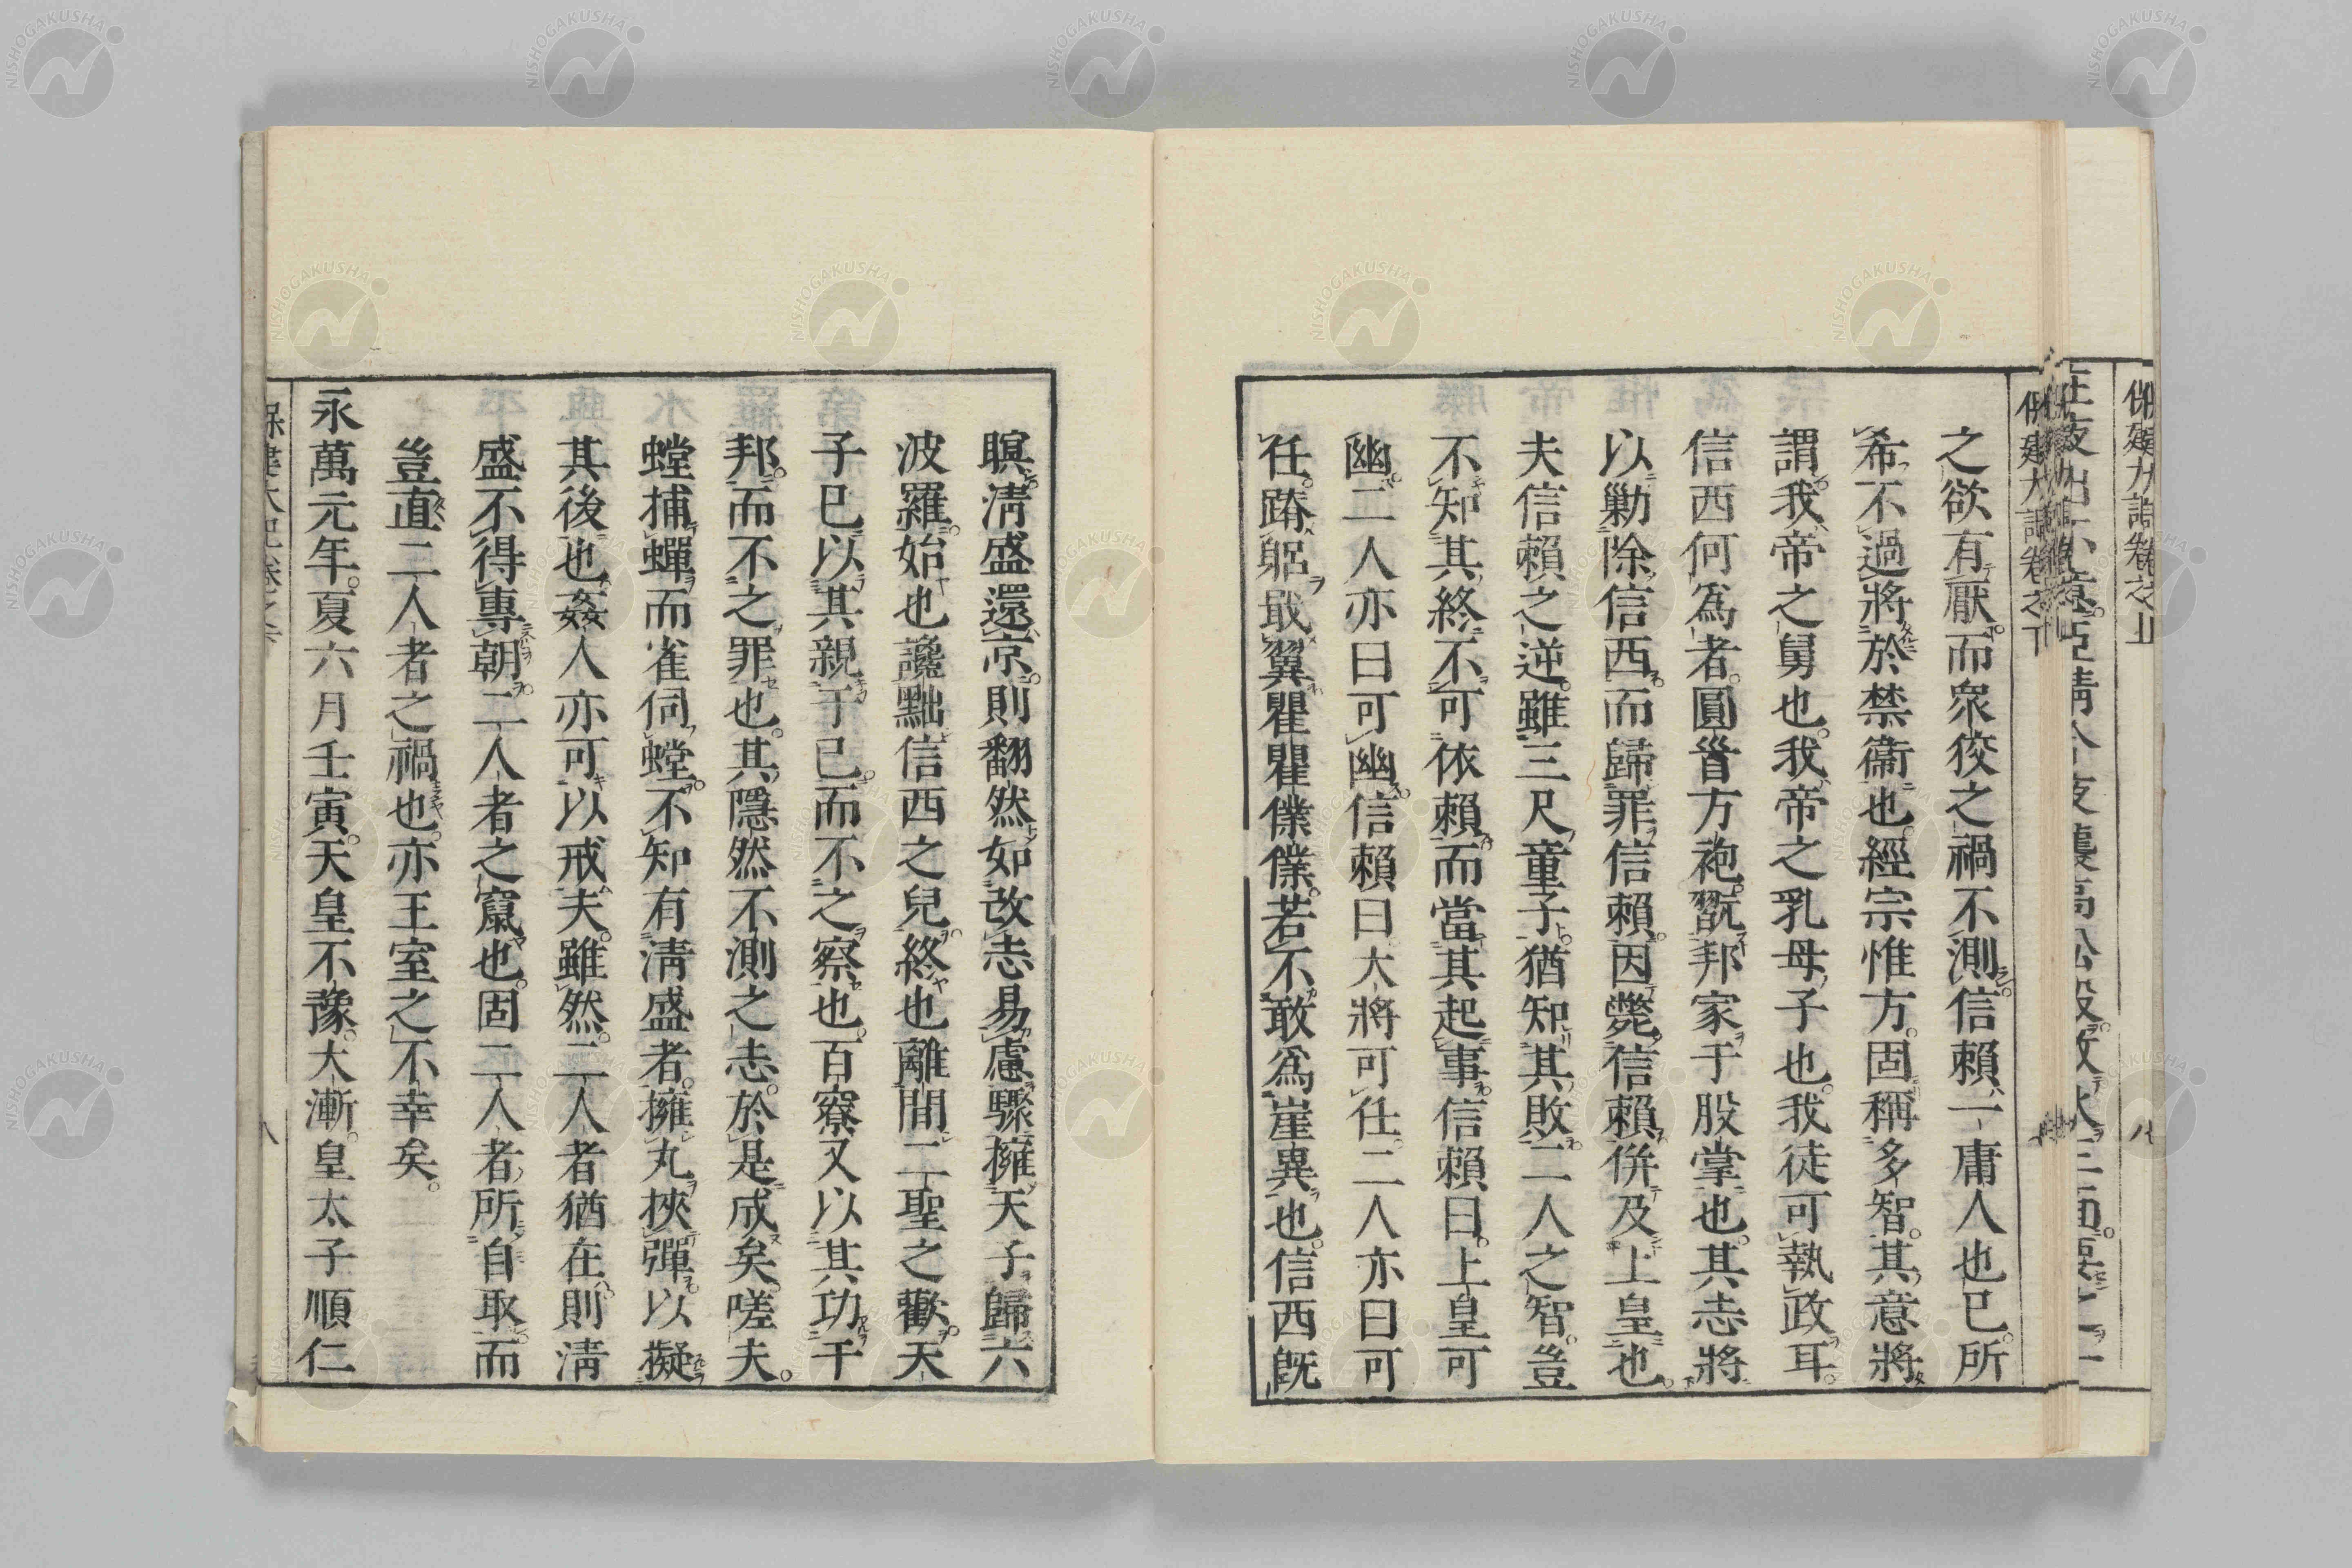 保建大記卷之上
保建大記卷之下
之欲有厭而衆狡之禍不測信賴一庸人也已所
希不過將於禁衞也經宗惟方固稱多智其意將
謂我帝之舅也我帝之乳母子也我徒可執政耳
信西何爲者圓𩠐方袍翫邦家于股掌也其志將
以勦除信西而歸罪信賴因斃信賴併及上皇也
夫信賴之逆雖三尺童子猶知其敗二人之智豈
不知其終不可依賴而當其起事信賴曰上皇可
幽二人亦曰可幽信賴曰大將可任二人亦曰可
任蹐躬戢翼瞿瞿僕僕若不敢爲崖異也信西旣
瞑淸盛還京則翻然如改志易慮驟擁天子歸六
波羅始也讒黜信西之兒終也離間二聖之歡天
子已以其親于已而不之察也百寮又以其功于
邦而不之罪也其隱然不測之志於是成矣嗟夫
螳捕蟬而雀伺螳不知有淸盛者擁丸挾彈以擬
其後也姦人亦可以戒夫雖然二人者猶在則淸
盛不得專朝二人者之竄也固二人者所自取而
豈直二人者之禍也亦王室之不幸矣
永萬元年夏六月壬寅天皇不豫大漸皇太子順仁
保建大記卷之下
八